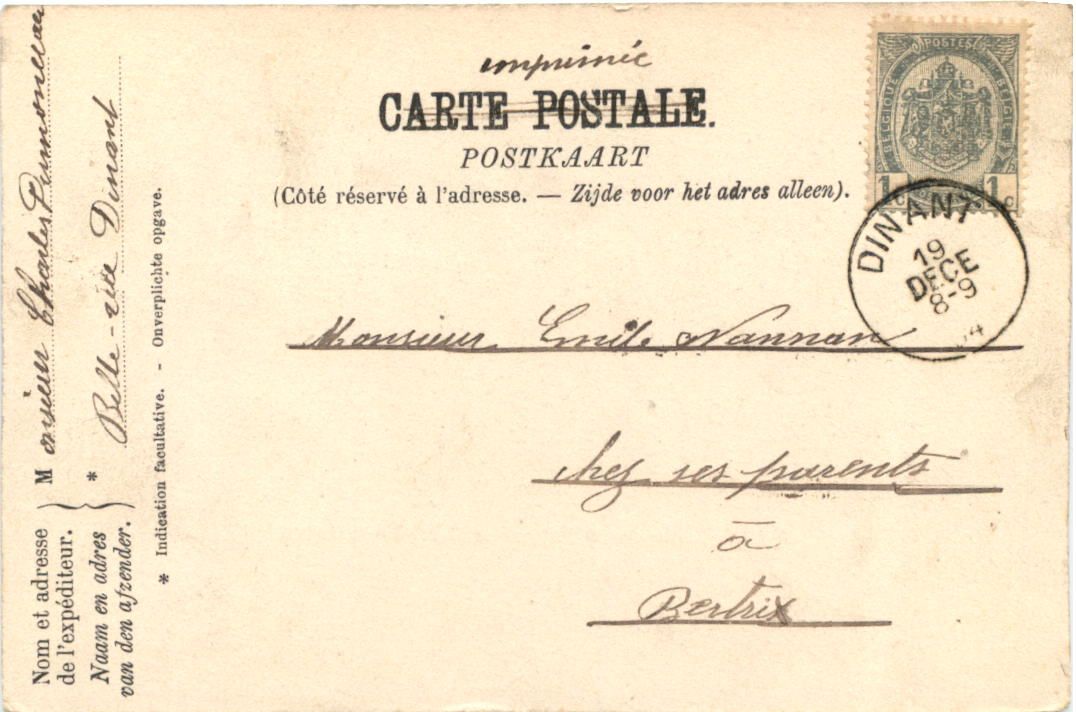 imprimée
CARTE POSTALE.
POSTKAART
(Côté réservé à l'adresse. — Zijde voor het adres alleen).
POSTES
BELGIQUE
BELGIË
1 c 1 c
DINANT
19
DECE
8-9
04
Monsieur Emile Nannan
chez ses parents
à
Bertrix
Nom et adresse
de l'expéditeur.
Naam en adres
van den afzender.
Monsieur Charles
* Belle-vue Dinant
* Indication facultative. - Onverplichte opgave.